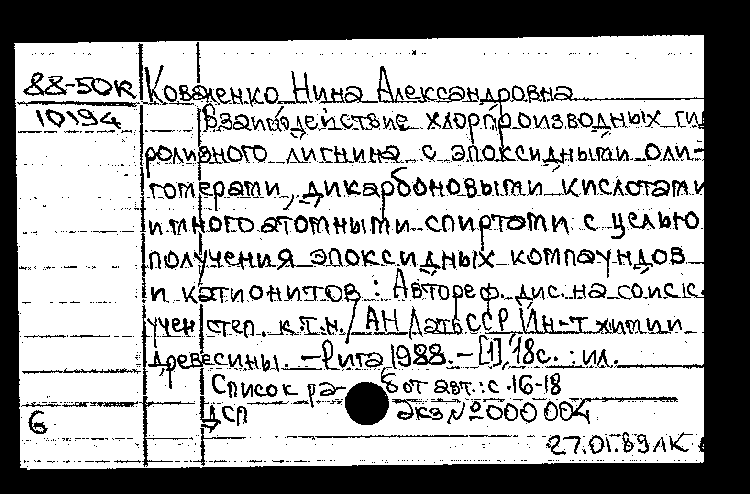 88-50к Коваленко Нина Александровна
10194 Взаимодействие хлорпроизводных гид
ролизного лигнина с эпоксидными оли-
гомерами, дикарбоновыми кислотами
и многоатомными спиртами с целью
получения эпоксидных компаундов
и катионитов : Автореф. дис. на соиск.
учен степ. к.т.н. / АН ЛатвССР Ин-т химии
древесины. – Рига 1988. – [1], 18с. : ил.
Список работ авт.: с. 16-18
6 ДСП экз № 000 004
27.01.89 ЛК